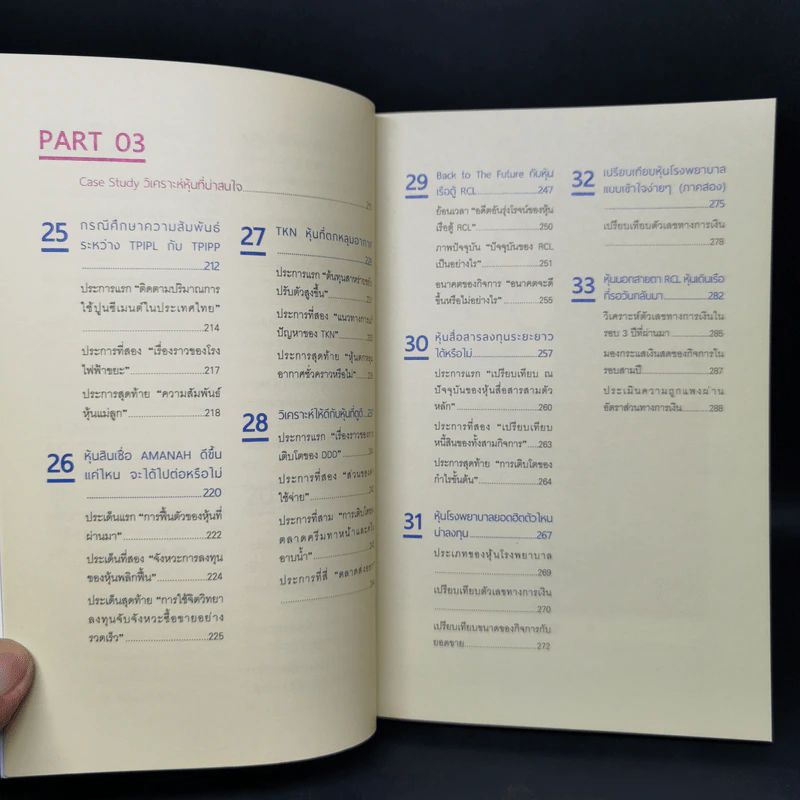 PART 03
Case Study วิเคราะห์หุ้นที่น่าสนใจ
25 กรณีศึกษาความสัมพันธ์
ระหว่าง TPIPL กับ TPIPP
212
ประการแรก "ติดตามปริมาณการ
ใช้ปูนซีเมนต์ในประเทศไทย"
214
ประการที่สอง "เรื่องราวของโรง
ไฟฟ้าขยะ" 217
ประการสุดท้าย "ความสัมพันธ์
หุ้นแม่ลูก" 218
26 หุ้นสินเชื่อ AMANAH ดีขึ้น
แค่ไหน จะได้ไปต่อหรือไม่
220
ประเด็นแรก "การฟื้นตัวของหุ้นที่
ผ่านมา" 222
ประเด็นที่สอง "จังหวะการลงทุน
ของหุ้นพลิกฟื้น" 224
ประเด็นสุดท้าย "การใช้จิตวิทยา
ลงทุนจับจังหวะซื้อขายอย่าง
รวดเร็ว" 226
27 TKN หุ้นที่ตกหลุมอากาศ
ประการแรก "ต้นทุนสาหร่าย
ปรับตัวสูงขึ้น"
ประการที่สอง "แนวทาง
ปัญหาของ TKN"
ประการสุดท้าย
อากาศชั่วคราวหรือไม่"
28 วิเคราะห์ให้ดีกับหุ้นที่ดูดี
ประการแรก "เรื่องราว
เติบโตของ DDD"
ประการที่สอง "ส่วนของ
ใช้จ่าย"
ประการที่สาม "การเติบโต
ตลาดครีมทาหน้า
อาบน้ำ"
ประการที่สี่ "ตลาด
29 Back to The Future กับหุ้น
เรือตู้ RCL 247
ย้อนเวลา "อดีตอันรุ่งโรจน์ของหุ้น
เรือตู้ RCL" 250
ภาพปัจจุบัน "ปัจจุบันของ RCL
เป็นอย่างไร" 251
อนาคตของกิจการ "อนาคตจะดี
ขึ้นหรือไม่อย่างไร" 255
30 หุ้นสื่อสารลงทุนระยะยาว
ได้หรือไม่ 257
ประการแรก "เปรียบเทียบ ณ
ปัจจุบันของหุ้นสื่อสารสามตัว
หลัก" 260
ประการที่สอง "เปรียบเทียบ
หนี้สินของทั้งสามกิจการ" 263
ประการสุดท้าย "การเติบโตของ
กำไรขั้นต้น" 264
31 หุ้นโรงพยาบาลยอดฮิตตัวไหน
น่าลงทุน 267
ประเภทของหุ้นโรงพยาบาล
269
เปรียบเทียบตัวเลขทางการเงิน
270
เปรียบเทียบขนาดของกิจการกับ
ยอดขาย 272
32 เปรียบเทียบหุ้นโรงพยาบาล
แบบเข้าใจง่ายๆ (ภาคสอง)
275
เปรียบเทียบตัวเลขทางการเงิน
278
33 หุ้นนอกสายตา RCL หุ้นเดินเรือ
ที่รอวันกลับมา 282
วิเคราะห์ตัวเลขทางการเงินใน
รอบ 3 ปีที่ผ่านมา 285
มองกระแสเงินสดของกิจการใน
รอบสามปี 287
ประเมินความถูกแพงผ่าน
อัตราส่วนทางการเงิน 288